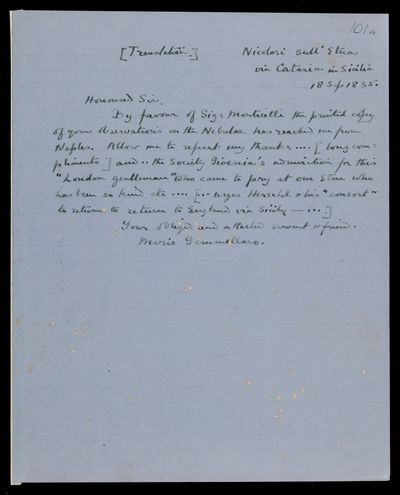 101a
[Translation.] Nicolosi sull' Etna
via Catania in Sicilia
18 Sep 1835.
Honoured Sir,
By favour of Sig: Monticelli the printed copy
of your observations on the Nebulae has reached me from
Naples. Allow me to repeat my thanks .... [long com-
pliments] and .. the Society Gioenia's admiration for this
"London gentleman" who came to pay at our Etna who
has been so kind etc .... [.. urges Herschel & his "consort"
to return to return to England via Sicily — ...]
Your obliged and attached servant & friend.
Mario Gemmellaro.